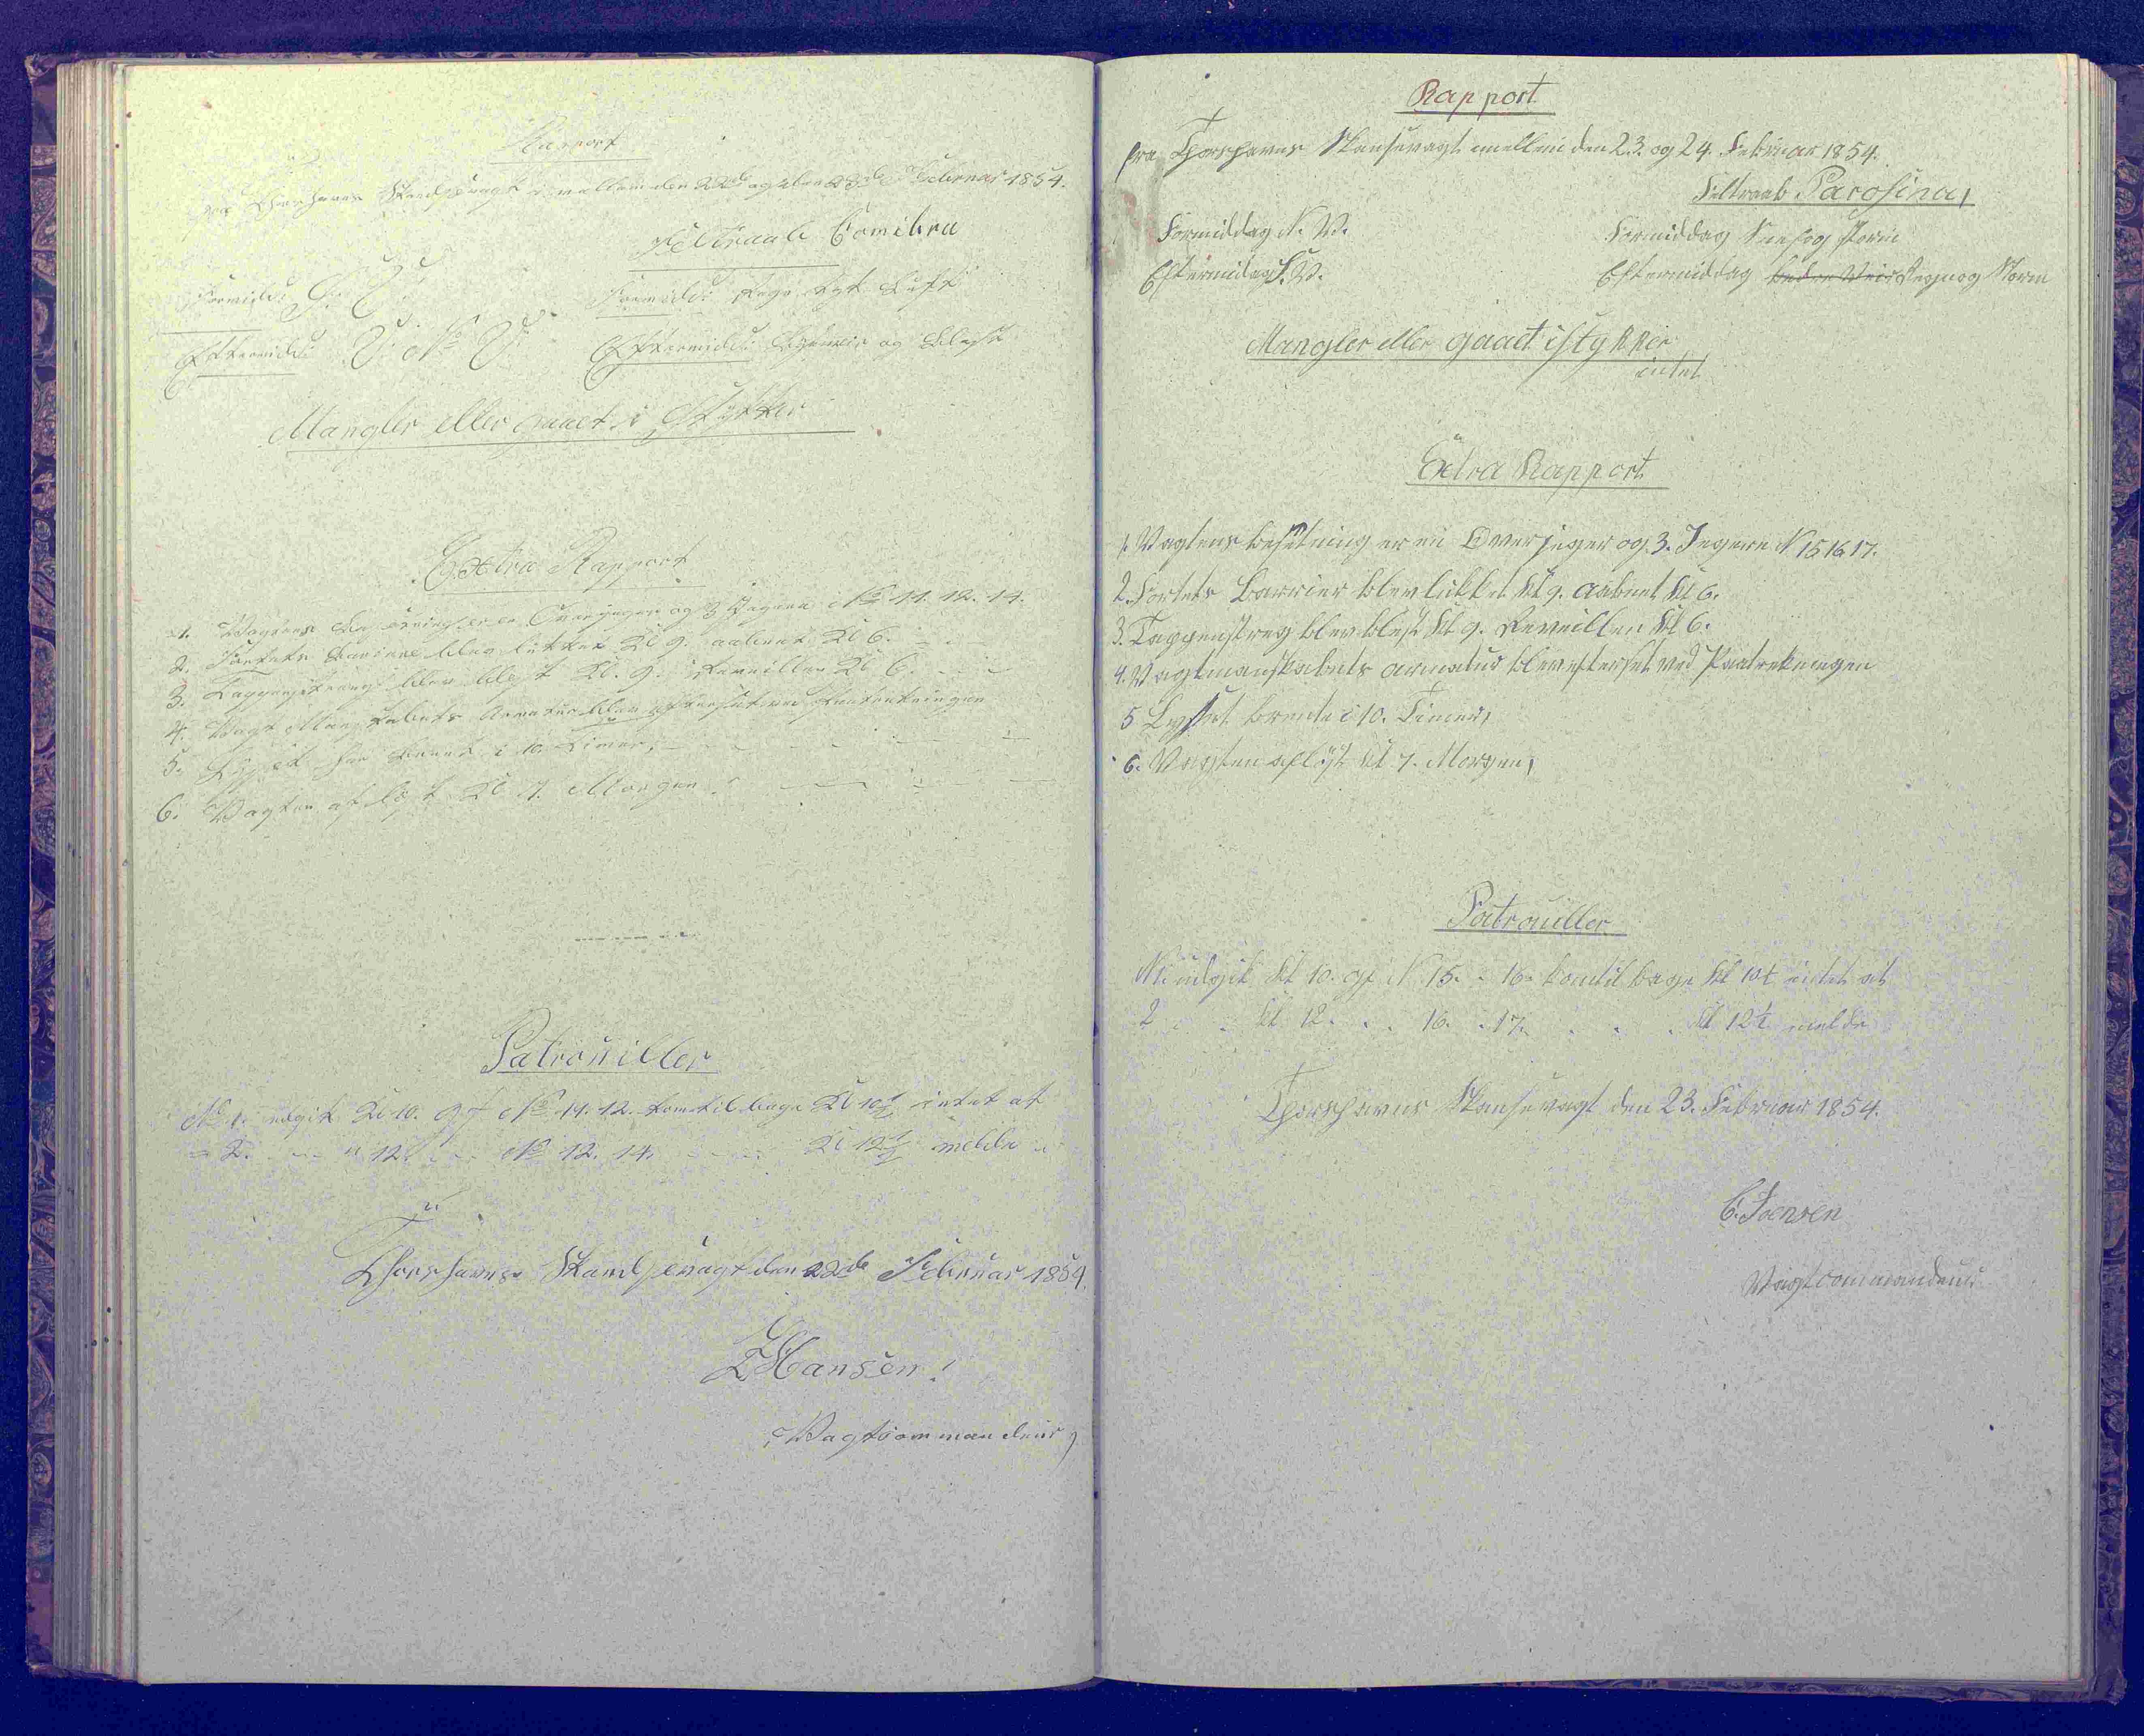 Rapport
fra Thorshavns Skandsevagt imellem den 22de og den 23de Februar 1854.
Feltraab Coimbra
Formidd: S. V.
Formidd: Regn tyk Luft
Eftermidd: V. N. V.
Eftermidd: og Blæst
Mangler eller gaaet i Stykker
Extra Rapport
1. Vagtens Besætning er en Overjæger og 3 Jægere No 11. 12. 14.
2. Fortets Barriere blev lukket Kl 9. aabnet Kl 6.
3. Tappenstreng blev blæst Kl. 9. Reveillen Kl 6.
4. Vagt Mandskabets Armatur blev efterset ved Paatrækningen
5. Lyset har brændt i 10 Timer,
6. Vagten afløst Kl 7. Morgen.
Patrouiller
No 1. udgik Kl 10. Gf No 11. 12. kom tilbage Kl 10½ intet at
" 2. " 12. No 12. 14. Kl 12½ melde
Thorshavns Skandsevagt den 22de Februar 1854.
Hansen
Vagtcommandeur
Rapport
fra Thorshavns Skansevagt imellem den 23. og 24. Februar 1854.
Feltraab Parosina,
Formiddag N. V.
Formiddag Snee og Storm
Eftermidag S. V.
Eftermiddag bedre Veir Regn og Storm
Mangler eller gaaet i stykker
intet
Extra Rapport
1. Vagtens besetning er en Overjeger og 3. Jegere N 15 16 17.
2. Fortets Barrier blev lukket Kl 9. aabnet Kl 6.
3. Tappenstreg blev blest Kl 9. Reveillen Kl 6.
4. Vagtmanskabets armatur blev efterset ved Paatrekningen
5 Lyset brente i 10. Timer,
6. Vagten afløst Kl 7. Morgen,
Patrouiller
N1. udgik Kl 10. gf N 15. " 16. kom til bage Kl 10½ intet at
2 " Kl 12. " " 16. " 17. " " " Kl 12½ melde
Thorshavns Skansevagt den 23. Februar 1854.
C. Joensen
Vagtcommandeur.